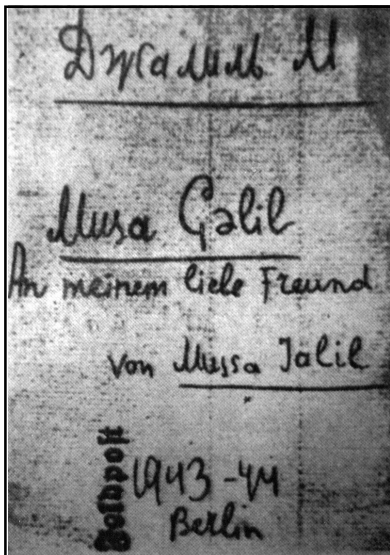 Джалиль М
Musa Çəlil
An meinem liebe Freund
von Mussa Jalil
Feldpost
1943-44
Berlin